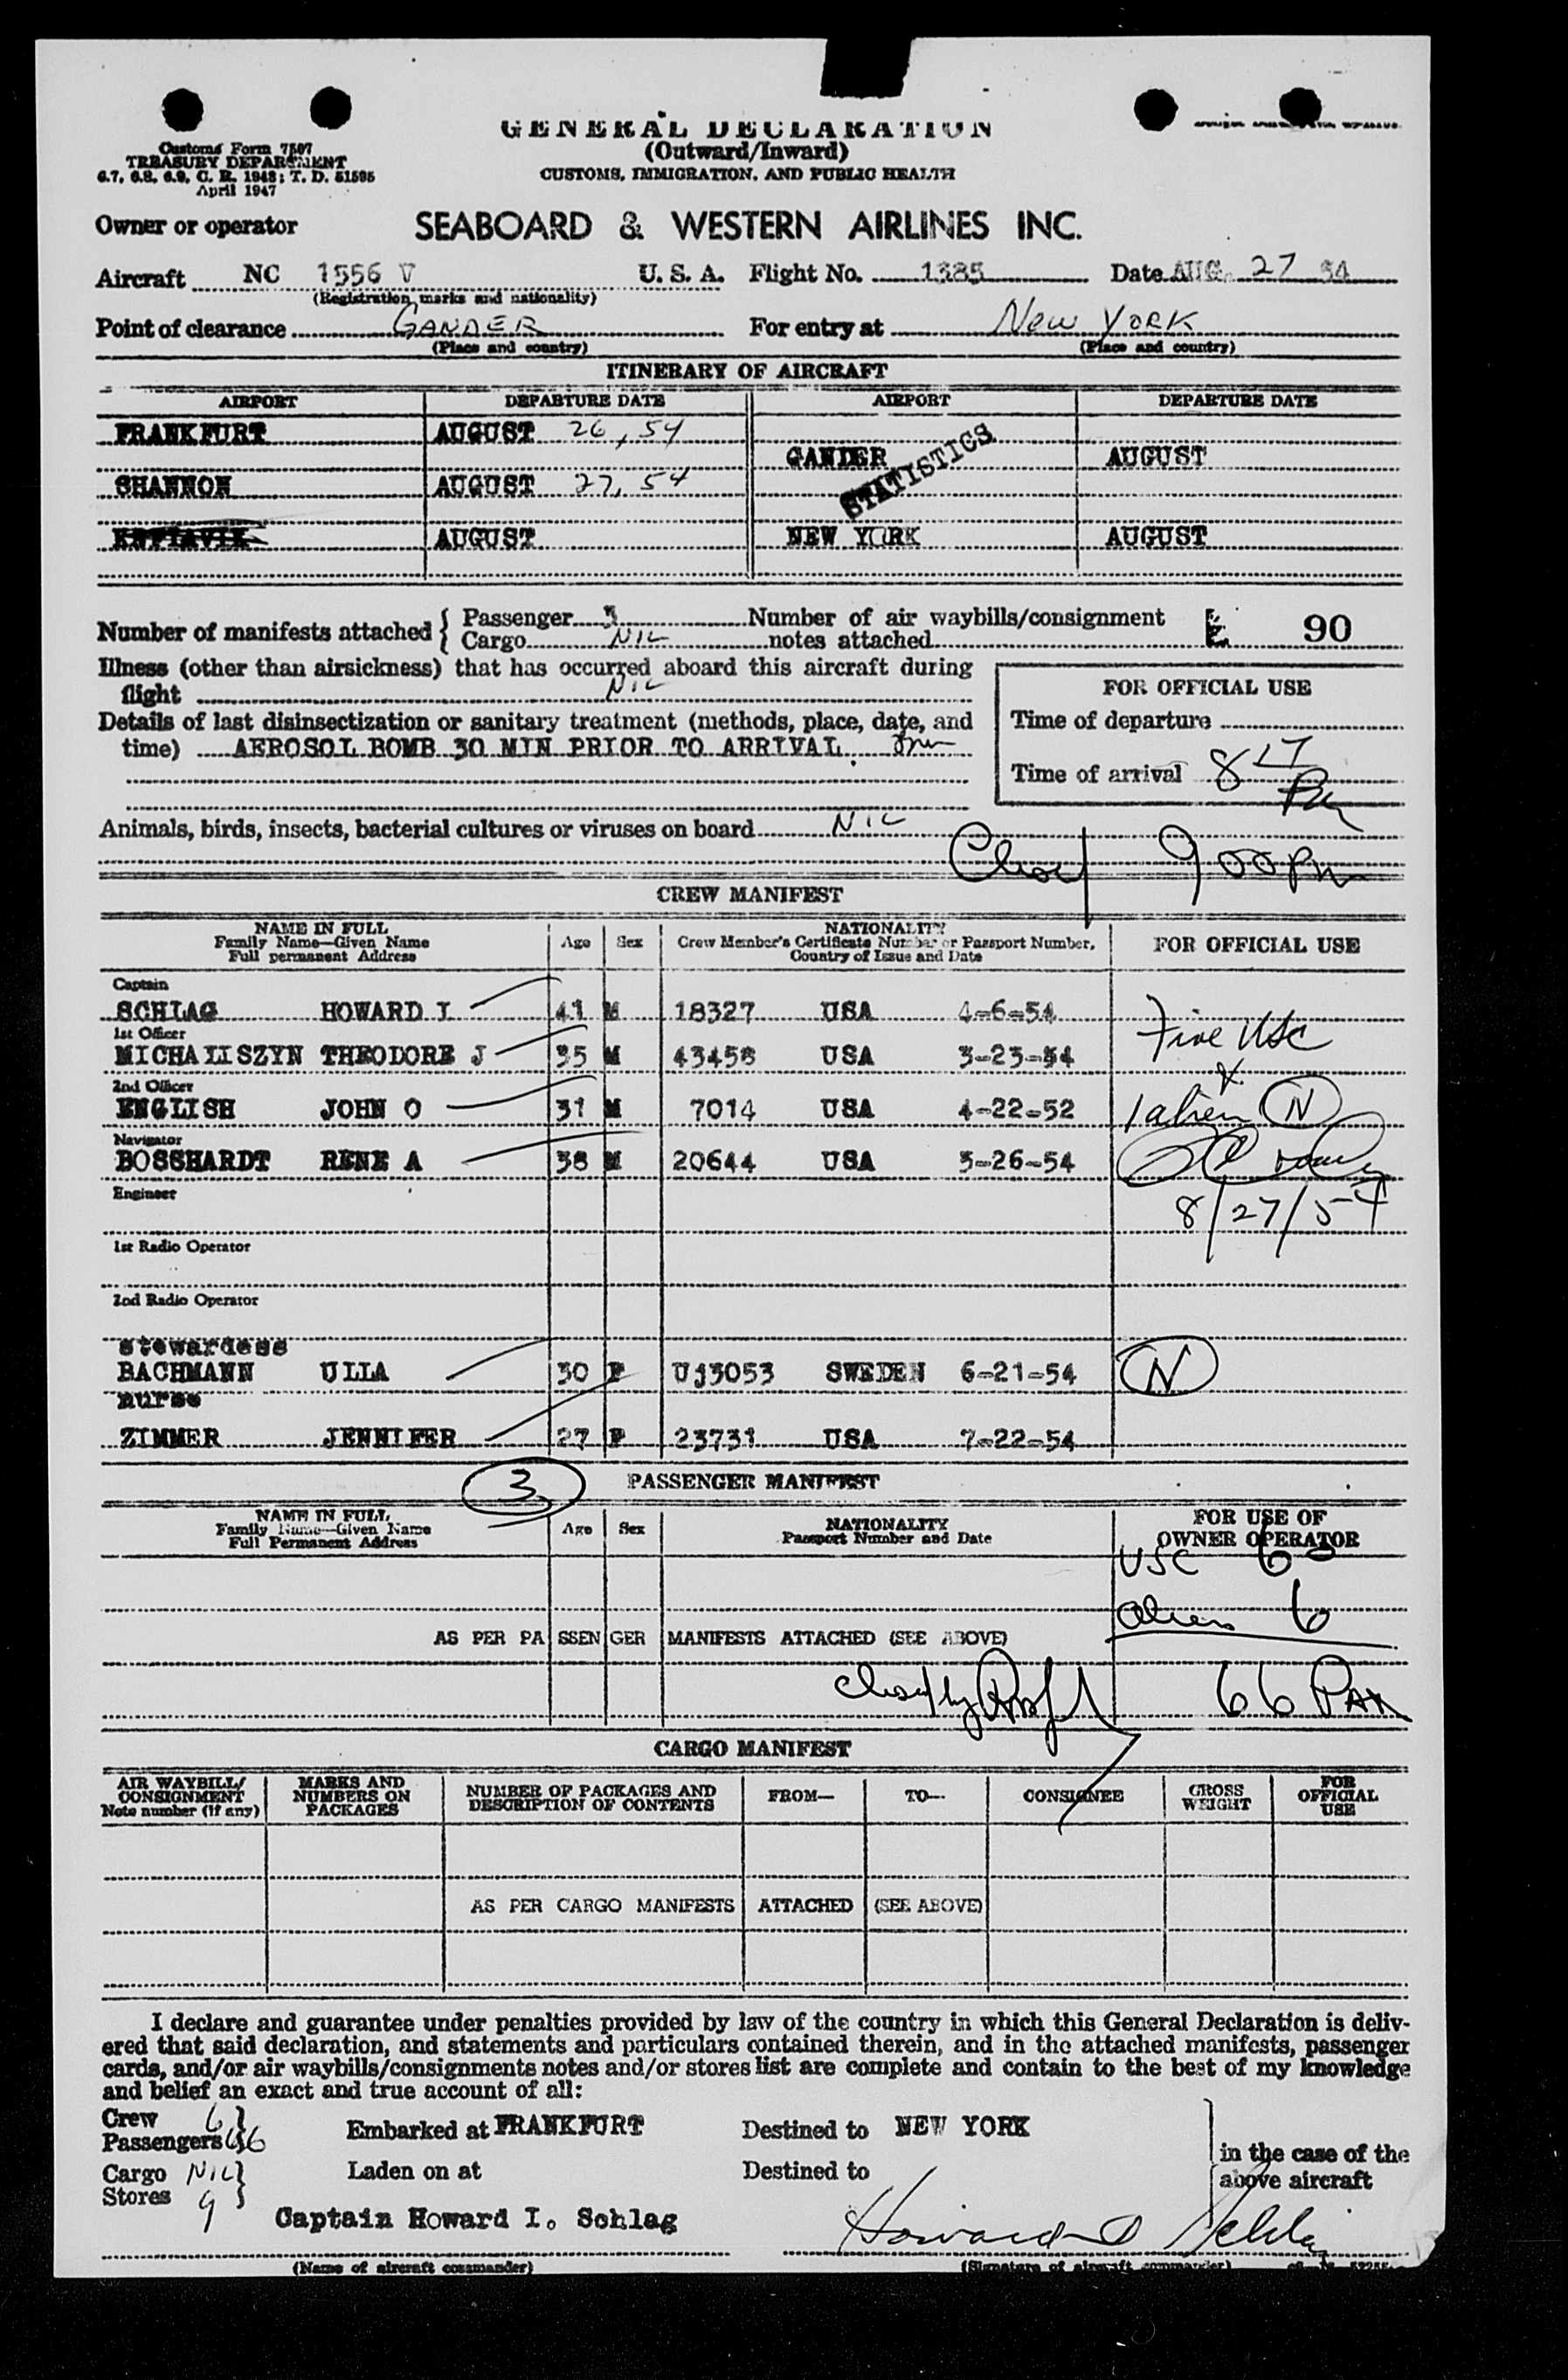 GENERAL DECLARATION
(Outward/Inward)
CUSTOMS, IMMIGRATION, AND PUBLIC HEALTH
Customs Form 7507
TREASURY DEPARTMENT
6.7, 6.8, 6.9, C. R. 1943; T. D. 51595
April 1947
Owner or operator SEABOARD & WESTERN AIRLINES INC.
Aircraft NC 1556 V U. S. A. Flight No. 1385 Date AUG. 27 54
(Registration marks and nationality)
Point of clearance GANDER For entry at New YORK
(Place and country) (Place and country)
ITINERARY OF AIRCRAFT
AIRPORT DEPARTURE DATE AIRPORT DEPARTURE DATE
FRANKFURT AUGUST 26, 54
GANDER AUGUST
STATISTICS
SHANNON AUGUST 27, 54
KEFLAVIK AUGUST NEW YORK AUGUST
Number of manifests attached { Passenger 3 Number of air waybills/consignment
Cargo NIL notes attached 90
Illness (other than airsickness) that has occurred aboard this aircraft during
flight NIL
FOR OFFICIAL USE
Details of last disinsectization or sanitary treatment (methods, place, date, and
time) AEROSOL BOMB 30 MIN PRIOR TO ARRIVAL.
Time of departure
Time of arrival 8 17 PM
Animals, birds, insects, bacterial cultures or viruses on board NIL
900 PM
CREW MANIFEST
NAME IN FULL
Family Name—Given Name
Full permanent Address
Age Sex
NATIONALITY
Crew Member's Certificate Number or Passport Number,
Country of Issue and Date
FOR OFFICIAL USE
Captain
SCHLAG HOWARD I 41 M 18327 USA 4-6-54
1st Officer
MICHALISZYN THEODORE J 35 M 43458 USA 3-23-54
Five USC
&
2nd Officer
ENGLISH JOHN O 31 M 7014 USA 4-22-52
1 alien N
Navigator
BOSSHARDT RENE A 38 M 20644 USA 5-26-54
8/27/54
Engineer
1st Radio Operator
2nd Radio Operator
stewardess
BACHMANN ULLA 30 F Uj3053 SWEDEN 6-21-54 N
nurse
ZIMMER JENNIFER 27 F 23731 USA 7-22-54
3 PASSENGER MANIFEST
NAME IN FULL
Family Name—Given Name
Full Permanent Address
Age Sex
NATIONALITY
Passport Number and Date
FOR USE OF
OWNER OPERATOR
USC 60
alien 6
AS PER PASSENGER MANIFESTS ATTACHED (SEE ABOVE)
66 PAX
CARGO MANIFEST
AIR WAYBILL/
CONSIGNMENT
Note number (if any)
MARKS AND
NUMBERS ON
PACKAGES
NUMBER OF PACKAGES AND
DESCRIPTION OF CONTENTS
FROM—
TO—
CONSIGNEE
GROSS
WEIGHT
FOR
OFFICIAL
USE
AS PER CARGO MANIFESTS ATTACHED (SEE ABOVE)
I declare and guarantee under penalties provided by law of the country in which this General Declaration is deliv-
ered that said declaration, and statements and particulars contained therein, and in the attached manifests, passenger
cards, and/or air waybills/consignments notes and/or stores list are complete and contain to the best of my knowledge
and belief an exact and true account of all:
Crew 6 }
Passengers 66 Embarked at FRANKFURT Destined to NEW YORK
in the case of the
Cargo NIL } Laden on at Destined to above aircraft
Stores 9
Captain Howard I. Schlag
Howard I Schlag
(Name of aircraft commander) (Signature of aircraft commander)